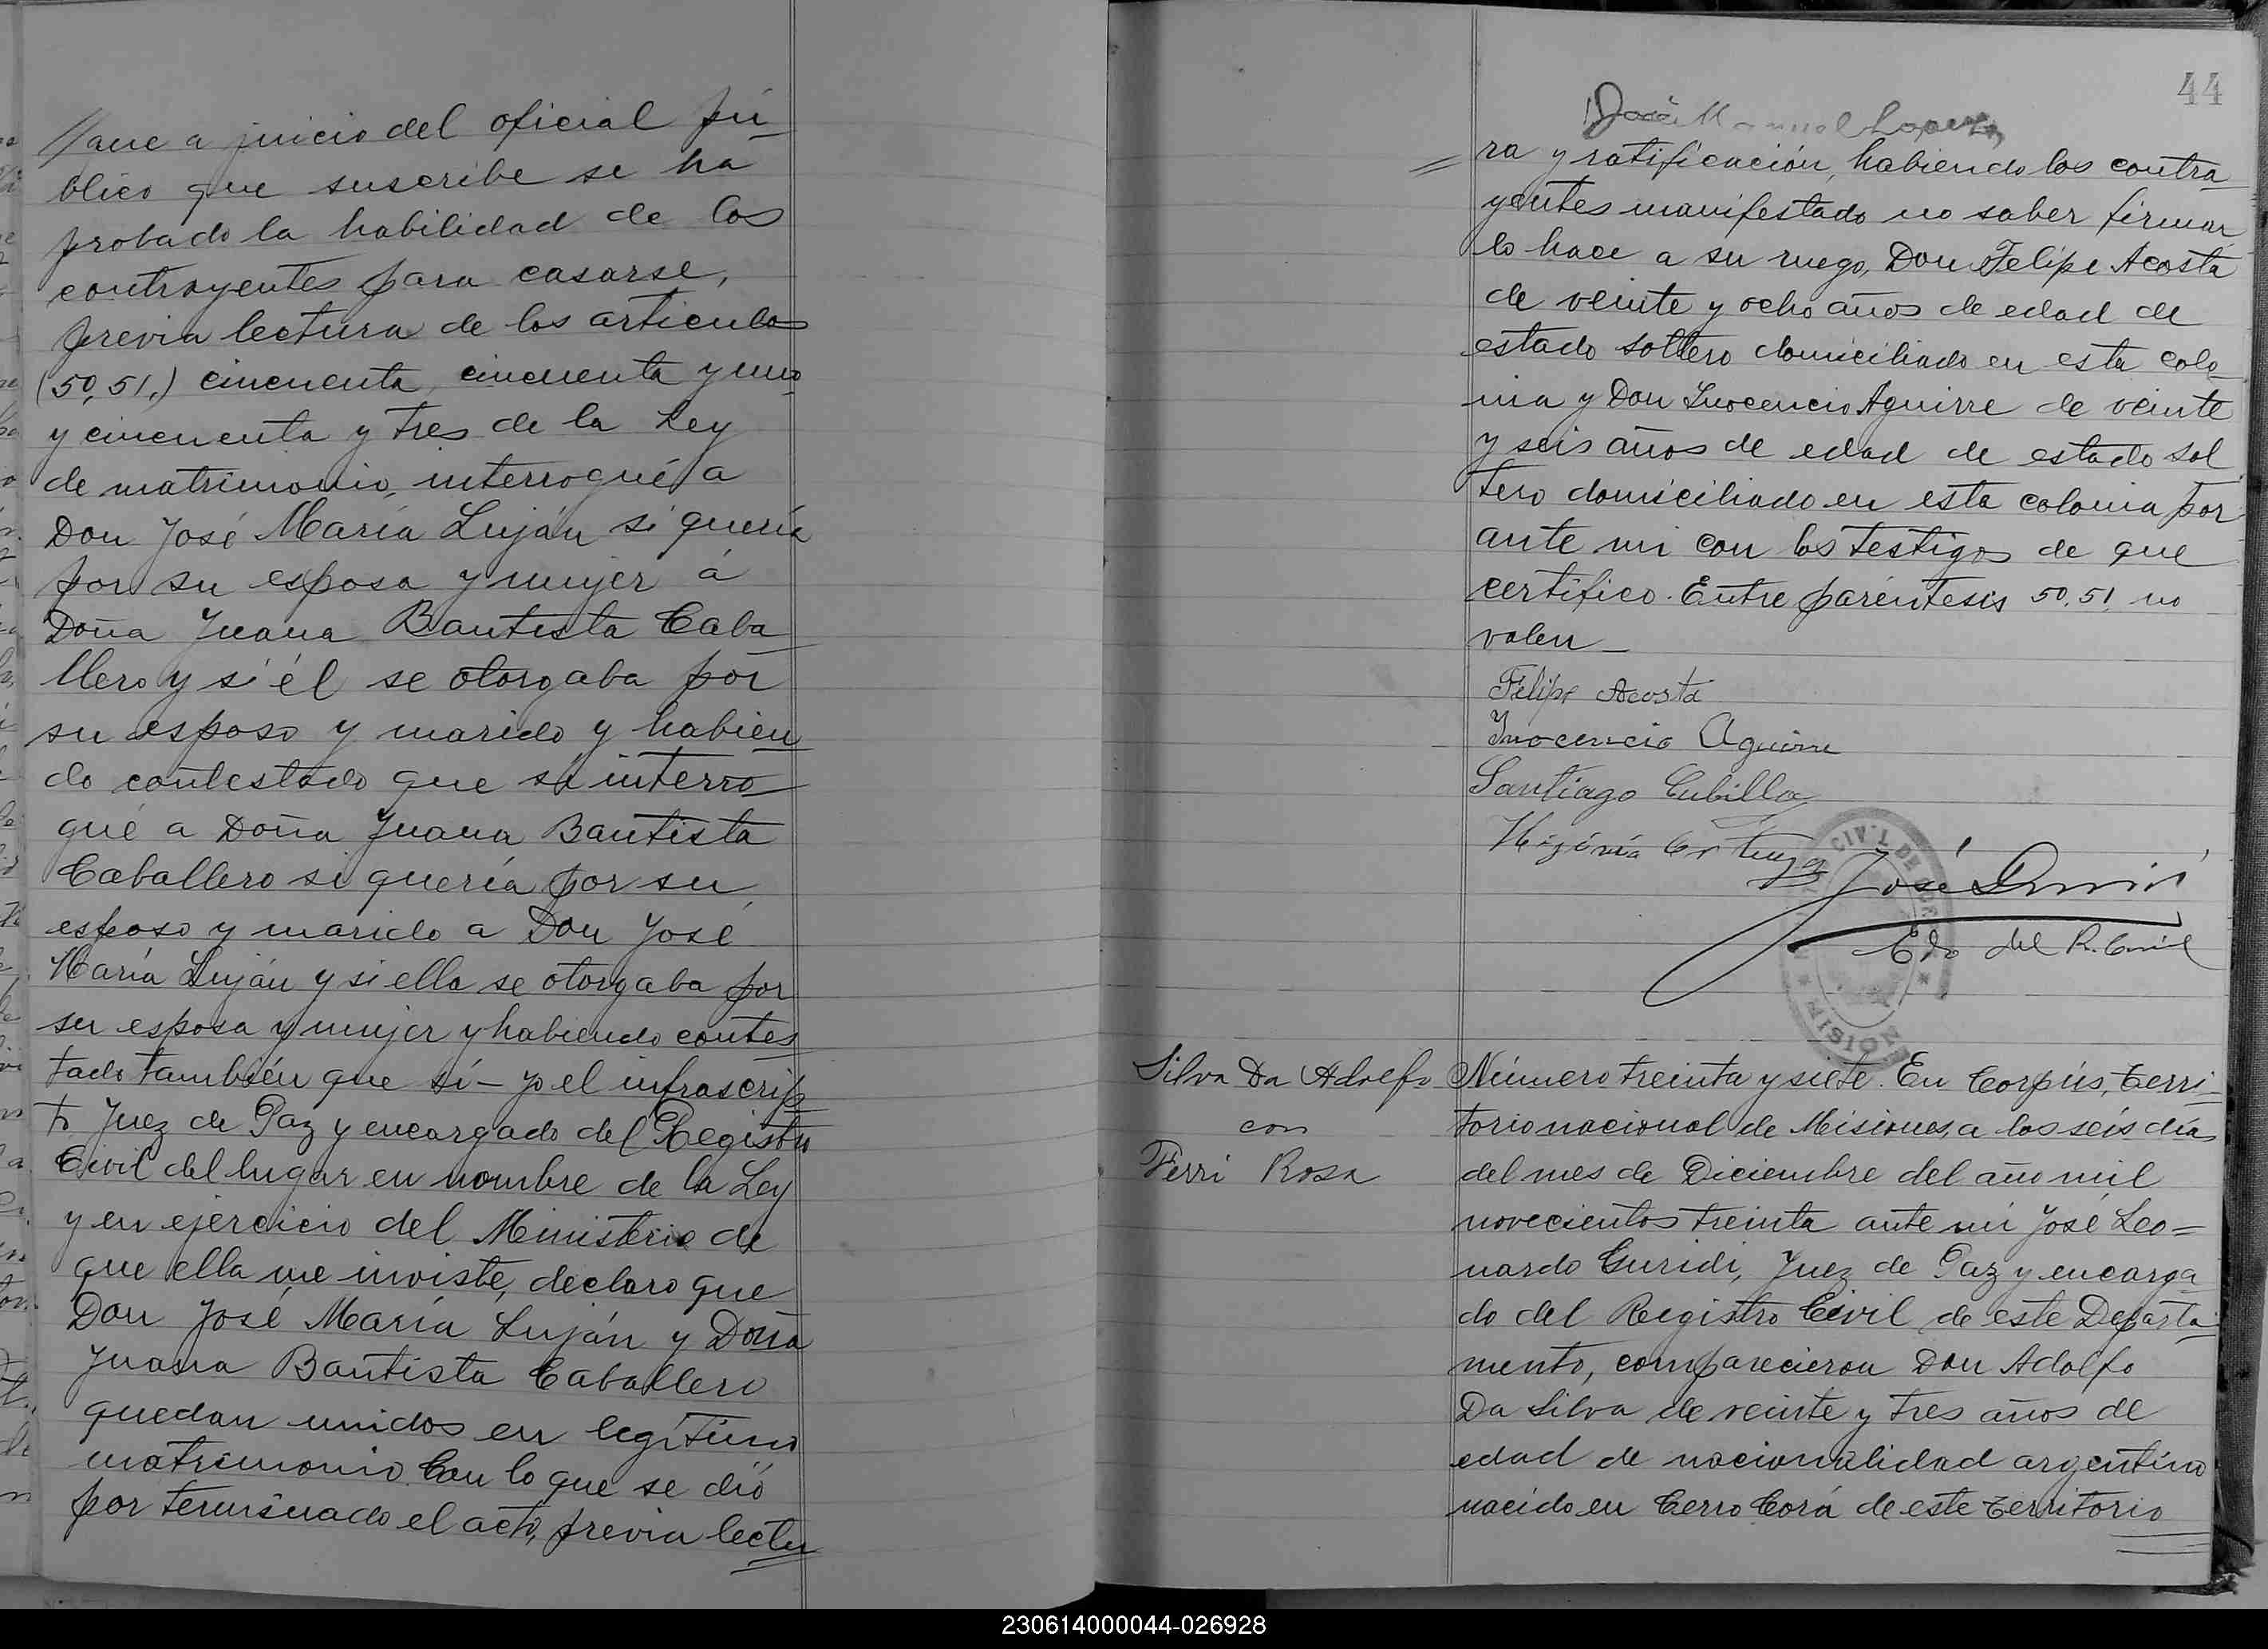 que a juicio del oficial pú
blico que suscribe se ha
probado la habilidad de los
contrayentes para casarse,
previa lectura de los articulos
(50, 51,) cincuenta, cincuenta y uno
y cincuenta y tres de la Ley
de matrimonio, interrogué a
Don José María Luján si quería
por su esposa y mujer á
Doña Juana Bautista Caba
llero y si él se otorgaba por
su esposo y marido y habien
do contestado que sí interro
gué a Doña Juana Bautista
Caballero si quería por su
esposo y marido a Don José
María Luján y si ella se otorgaba por
su esposa y mujer y habiendo contes
tado también que sí - yo el infrascrip
to Juez de Paz y encargado del Registro
Civil del lugar en nombre de la Ley
y en ejercicio del Ministerio de
que ella me inviste, declaro que
Don José María Luján y Doña
Juana Bautista Caballero
quedan unidos en legítimo
matrimonio. Con lo que se dió
por terminado el acto, previa lectu
44
José Manuel Lopez
ra y ratificación, habiendo los contra
yentes manifestado no saber firmar
lo hace a su ruego, Don Felipe Acosta
de veinte y ocho años de edad de
estado soltero domiciliado en esta colo
nia y Don Inocencio Aguirre de veinte
y seis años de edad de estado sol
tero domiciliado en esta colonia por
ante mi con los testigos de que
certifico. Entre paréntesis 50, 51, no
valen _
Felipe Acosta
Inocencio Aguirre
Santiago Cubilla
José Guridi
Edo del R. Civil
CIVIL DE
MISIONES
Silva Da Adolfo
con
Ferri Rosa
Número treinta y siete. En Corpús, terri-
torio nacional de Misiones, a los seis dias
del mes de Diciembre del año mil
novecientos treinta ante mi José Leo=
nardo Guridi, Juez de Paz y encarga
do del Registro Civil de este Departa
mento, comparecieron Don Adolfo
Da Silva de veinte y tres años de
edad de nacionalidad argentino
nacido en Cerro Corá de este territorio
230614000044-026928